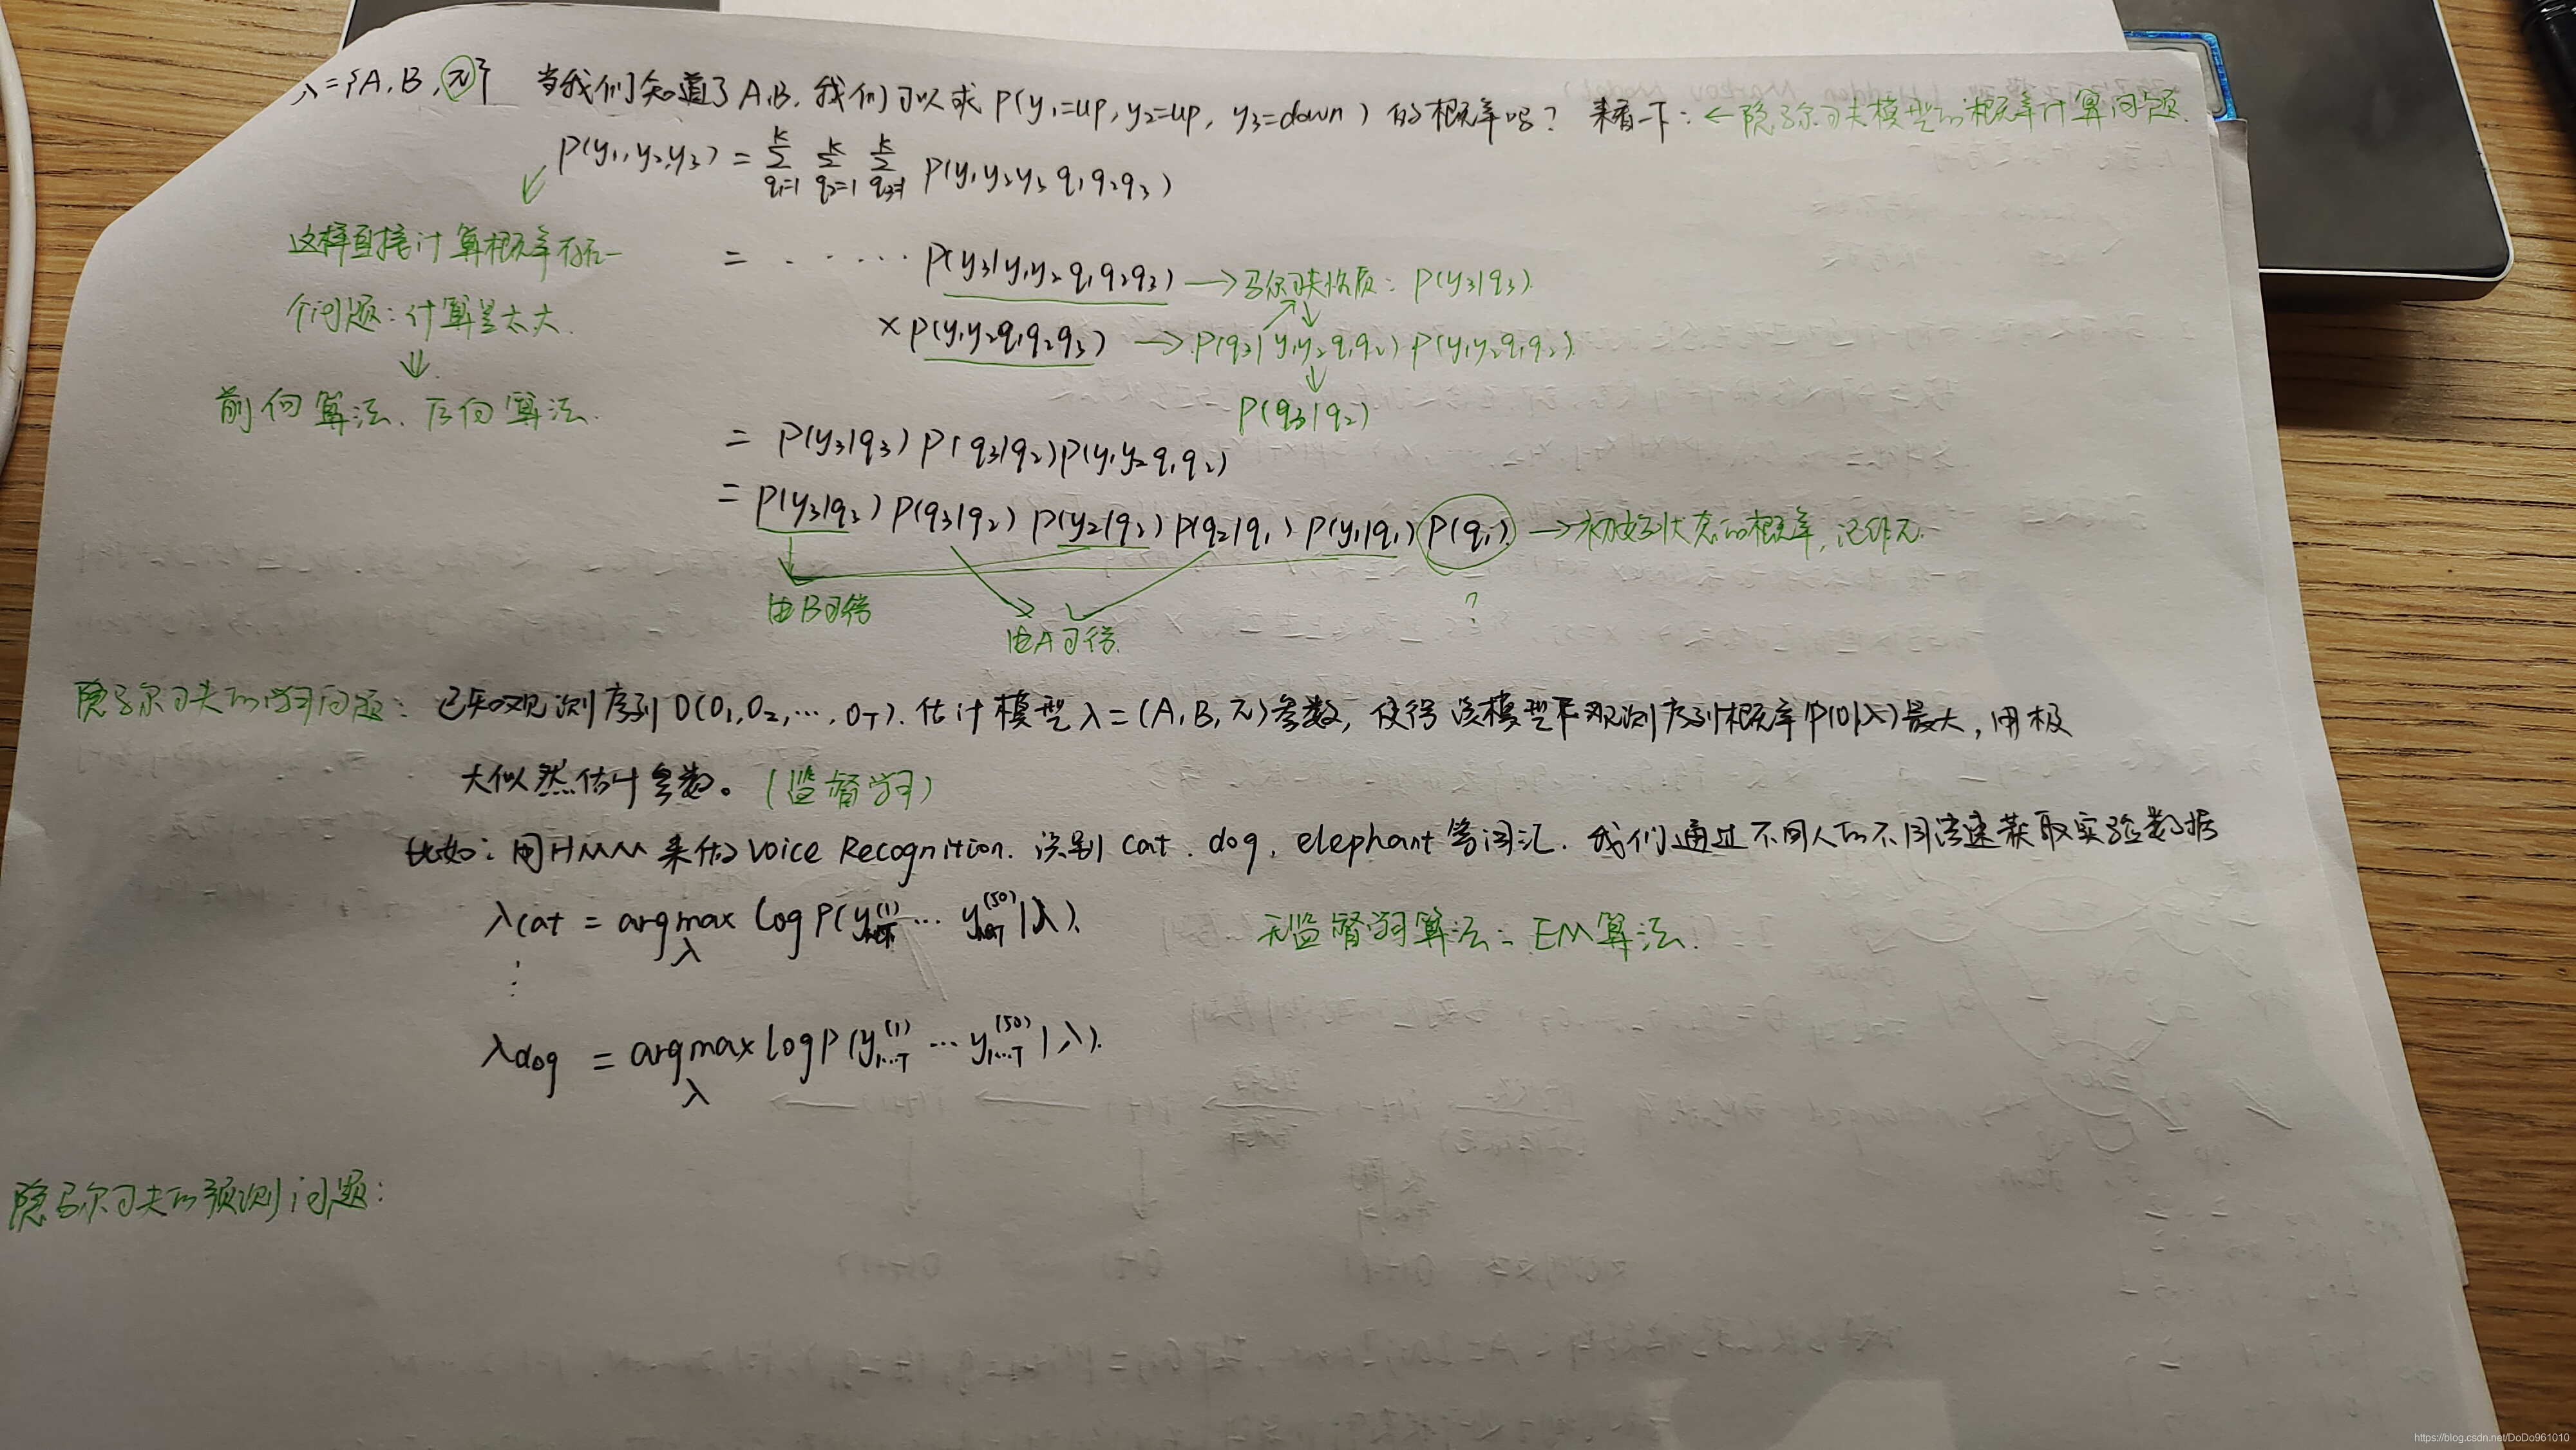 λ={A,B,π} 当我们知道了A,B,我们可以求 P(y₁=up, y₂=up, y₃=down) 的概率吗? 来看一下: ← 隐马尔可夫模型的概率计算问题.
P(y₁,y₂,y₃) = Σ_{q₁=1}^{k} Σ_{q₂=1}^{k} Σ_{q₃=1}^{k} P(y₁y₂y₃q₁q₂q₃)
这样直接计算概率存在一
个问题:计算量太大.
↓
前向算法、后向算法.
= ····· P(y₃|y₁y₂q₁q₂q₃) → 马尔可夫性质: P(y₃|q₃).
× P(y₁y₂q₁q₂q₃) → P(q₃|y₁y₂q₁q₂) P(y₁y₂q₁q₂).
↓
P(q₃|q₂)
= P(y₃|q₃) P(q₃|q₂) P(y₁y₂q₁q₂)
= P(y₃|q₃) P(q₃|q₂) P(y₂|q₂) P(q₂|q₁) P(y₁|q₁) P(q₁) → 初始状态的概率,记作π.
由B可得
由A可得.
?
隐马尔可夫的学习问题: 已知观测序列O(O₁,O₂,…,O_T).估计模型λ=(A,B,π)参数,使得该模型下观测序列概率P(O|λ)最大,用极
大似然估计参数。(监督学习)
比如:用HMM来做Voice Recognition. 识别 cat、dog, elephant等词汇. 我们通过不同人的不同语速获取实验数据
λcat = argmax_λ log P(y^{(1)} ··· y^{(50)} | λ).
无监督学习算法: EM算法.
⋮
λdog = argmax_λ log P(y_{1…T}^{(1)} ··· y_{1…T}^{(50)} | λ).
隐马尔可夫的预测问题:
https://blog.csdn.net/DoDo961010